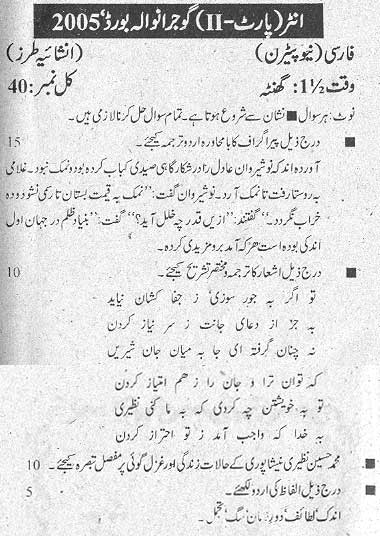 انٹر (پارٹ-II) گوجرانوالہ بورڈ، 2005
فارسی (نیو پیٹرن) (انشائیہ طرز)
وقت 1½: گھنٹہ کل نمبر: 40
نوٹ: ہر سوال ■ نشان سے شروع ہوتا ہے۔ تمام سوال حل کرنا لازمی ہیں۔
■ درج ذیل پیراگراف کا بامحاورہ اردو ترجمہ کیجئے۔ 15
آوردہ اند کہ نوشیروان عادل را در شکار گاہی صیدی کباب کردہ بود و نمک نبود۔ غلامی
بہ روستا رفت تا نمک آرد۔ نوشیروان گفت: "نمک بہ قیمت بستان تا رسمی نشود و دہ
خراب نگردد۔" گفتند: "ازیں قدر چہ خلل آید؟" گفت: "بنیاد ظلم در جہان اول
اندکی بودہ است ہر کہ آمد برو مزیدی کردہ۔
■ درج ذیل اشعار کا ترجمہ و مختصر تشریح کیجئے۔ 10
تو اگر بہ جور سوزی ز جفا کشان نیاید
بہ جز از دعای جانت ز سر نیاز کردن
نہ چنان گرفتہ ای جا بہ میان جان شیریں
کہ توان ترا و جان را ز ھم امتیاز کردن
تو بہ خویشتن چہ کردی کہ بہ ما کنی نظیری
بہ خدا کہ واجب آمد ز تو احتراز کردن
■ محمد حسین نظیری نیشاپوری کے حالات زندگی اور غزل گوئی پر مفصل تبصرہ کیجئے۔ 10
■ درج ذیل الفاظ کی اردو لکھئے۔ 5
اندک، لطائف، دو، سگ، تجمل۔